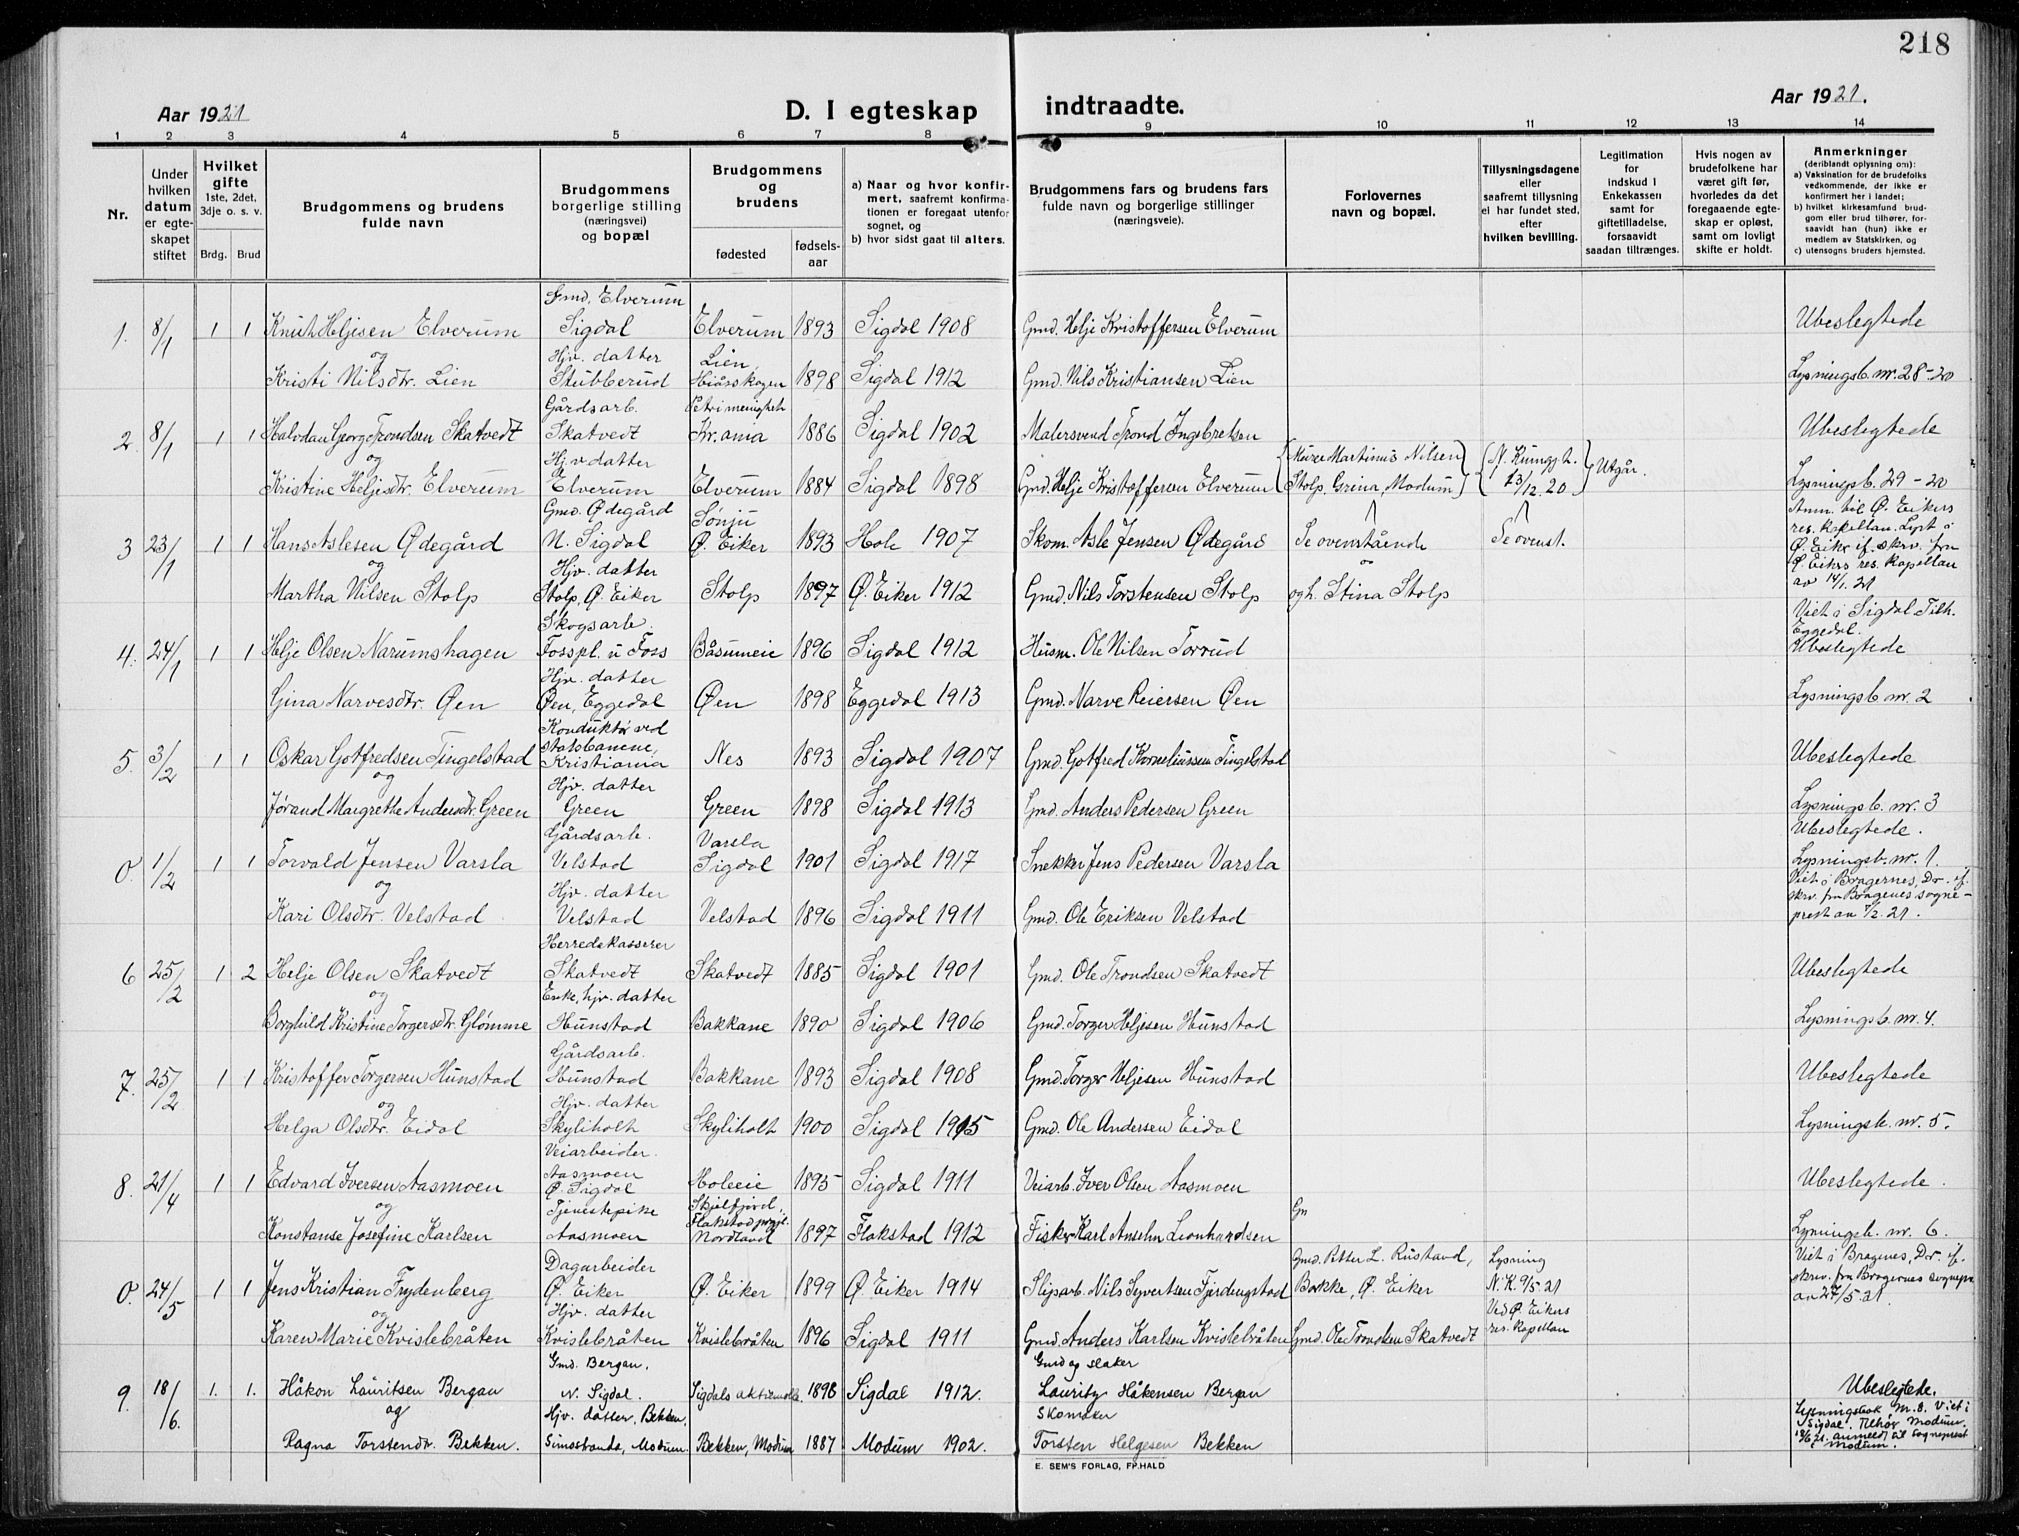 218
Aar 1921
D. Iegteskap indtraadte.
Aar 1921.
1 2 3 4 5 6 7 8 9 10 11 12 13 14
Nr.
Under hvilken datum er egteskapet stiftet
Hvilket gifte 1ste, 2det, 3dje o. s. v.
Brdg. Brud
Brudgommens og brudens fulde navn
Brudgommens borgerlige stilling (næringsvei) og bopæl
Brudgommens og brudens
fødested
fødselsaar
a) Naar og hvor konfirmert, saafremt konfirmationen er foregaat utenfor sognet, og
b) hvor sidst gaat til alters.
Brudgommens fars og brudens fars fulde navn og borgerlige stillinger (næringsveie).
Forlovernes navn og bopæl.
Tillysningsdagene eller saafremt tillysning ei har fundet sted, efter hvilken bevilling.
Legitimation for indskud i Enkekassen samt for giftetilladelse, forsaavidt saadan tiltrænges.
Hvis nogen av brudefolkene har været gift før, hvorledes da det foregaaende egteskap er opløst, samt om lovligt skifte er holdt.
Anmerkninger (deriblandt oplysning om):
a) Vaksination for de brudefolks vedkommende, der ikke er konfirmert her i landet;
b) hvilket kirkesamfund brudgom eller brud tilhører, forsaavidt han (hun) ikke er medlem av Statskirken, og
c) utensogns bruders hjemsted.
Gmd. Elverum
1. 8/1 1 1 Knut Heljesen Elverum Sigdal Elverum 1893 Sigdal 1908 Gmd. Helje Kristoffersen Elverum Ubeslegtede
og Hjv. datter Lien,
Kristi Nilsdtr. Lien Stubberud Hiåsskogen 1898 Sigdal 1912 Gmd. Nils Kristiansen Lien Lysningsb. nr. 28-20
Gårdsarb. Petri menighet
2. 8/1 1 1 Halvdan Georg Trondsen Skatvedt Skatvedt Kr.ania 1886 Sigdal 1902 Malersvend Trond Ingebretsen Ubeslegtede
og Hjv. datter Murer Martinus Nilsen N. Kunngj. b.
Kristine Heljesdtr. Elverum Elverum Elverum 1884 Sigdal 1898 Gmd. Helje Kristoffersen Elverum Stolp, Grina, Modum 23/12. 20 Utgår. Lysningsb. 29-20
Gmd. Ødegård Sønju Anm. til Ø. Eikers
3 23/1 1 1 Hans Aslesen Ødegård N. Sigdal Ø. Eiker 1893 Hole 1907 Skom. Asle Jensen Ødegård Se ovenstående Se ovenst. res. kapellan. Lyst i Ø. Eiker if. skrv. fra Ø. Eikers res. kapellan av 14/1. 21
og Hjv. datter
Martha Nilsen Stolp Stolp, Ø. Eiker Stolp 1897 Ø. Eiker 1912 Gmd. Nils Torstensen Stolp og h. Stina Stolp
Skogsarb. Viet i Sigdal. Tilh. Eggedal.
4. 24/1 1 1 Helje Olsen Narumshagen Fosspl. u Foss Båsumeie 1896 Sigdal 1912 Husm. Ole Nilsen Torrud Ubeslegtede
Hjv. datter
Gina Narvesdtr. Øen Øen, Eggedal Øen 1898 Eggedal 1913 Gmd. Narve Reiersen Øen Lysningsb. nr. 2
Konduktør ved statsbanene,
5. 3/2 1 1 Oskar Gotfredsen Tingelstad Kristiania Nes 1893 Sigdal 1907 Gmd. Gotfred Korneliussen Tingelstad Ubeslegtede
og Hjv. datter
Jørand Margrethe Andersdtr. Green Green Green 1898 Sigdal 1913 Gmd. Anders Pedersen Green Lysningsb. nr. 3
Gårdsarb. Varsla Ubeslegtede.
0. 1/2 1 1 Torvald Jensen Varsla Velstad Sigdal 1901 Sigdal 1917 Snekker Jens Pedersen Varsla Lysningsb. nr. 1.
og Hjv. datter Viet i Bragernes, Dr. if. skrv. fra Bragenes sogneprest av 7/2. 21.
Kari Olsdtr. Velstad Velstad Velstad 1896 Sigdal 1911 Gmd. Ole Eriksen Velstad
Herredskasserer
6 25/2 1 2 Helje Olsen Skatvedt Skatvedt Skatvedt 1885 Sigdal 1901 Gmd. Ole Trondsen Skatvedt Ubeslegtede
og Enke, hjv. datter
Borghild Kristine Torgersdtr. Glømme Hunstad Bakkane 1890 Sigdal 1906 Gmd. Torger Heljesen Hunstad Lysningsb. nr. 4.
Gårdsarb.
7. 25/2 1 1 Kristoffer Torgersen Hunstad Hunstad Bakkane 1893 Sigdal 1908 Gmd. Torger Heljesen Hunstad Ubeslegtede
og Hjv. datter
Helga Olsdtr. Eidal Skyliholt Skyliholt 1900 Sigdal 1915 Gmd. Ole Andersen Eidal Lysningsb. nr. 5.
Veiarbeider. Aasmoen
8. 21/4 1 1 Edvard Iversen Aasmoen Ø. Sigdal Holeeie 1895 Sigdal 1911 Veiarb. Iver Olsen Aasmoen Ubeslegtede.
og Tjenestepike Skjelfjord, Flakstad prgjl. Gm
Konstanse Josefine Karlsen Aasmoen Nordland 1897 Flakstad 1912 Fisker Karl Anselm Leonhardsen Lysningsb. nr. 6.
Dagarbeider Gmd. Petter L. Rustand, Lysning Viet i Bragenes, Dr. if.
0. 24/5 1 1 Jens Kristian Frydenberg Ø. Eiker Ø. Eiker 1899 Ø. Eiker 1914 Slipsarb. Nils Syvertsen Fjerdingstad Bakke, Ø. Eiker N. K. 9/5. 21 skrv. fra Bragernes sognepr. av 27/5. 21.
og Hjv. datter Ved Ø. Eikers
Karen Marie Kvislebråten Kvislebråten Kvislebråten 1896 Sigdal 1911 Gmd. Anders Karlsen Kvislebråten Gmd. Ole Trondsen Skatvedt res. kapellan
Gmd. Bergan. Gmd og slakter
9. 18/6. 1. 1. Håkon Lauritsen Bergan N. Sigdal. Sigdals aktiemølle. 1898 Sigdal 1912. Lauritz Håkensen Bergan Ubeslegtede.
og Hjv. datter, Bekken, Skomaker Lysningsbok nr. 8. Viet i Sigdal. Tilhør Modum. 18/6 21. anmeldt til sogneprest i Modum.
Ragna Torstendtr. Bekken. Simostranda, Modum. Bekken, Modum 1887 Modum 1902. Torsten Helgesen Bekken
E. SEM'S FORLAG, FR.HALD